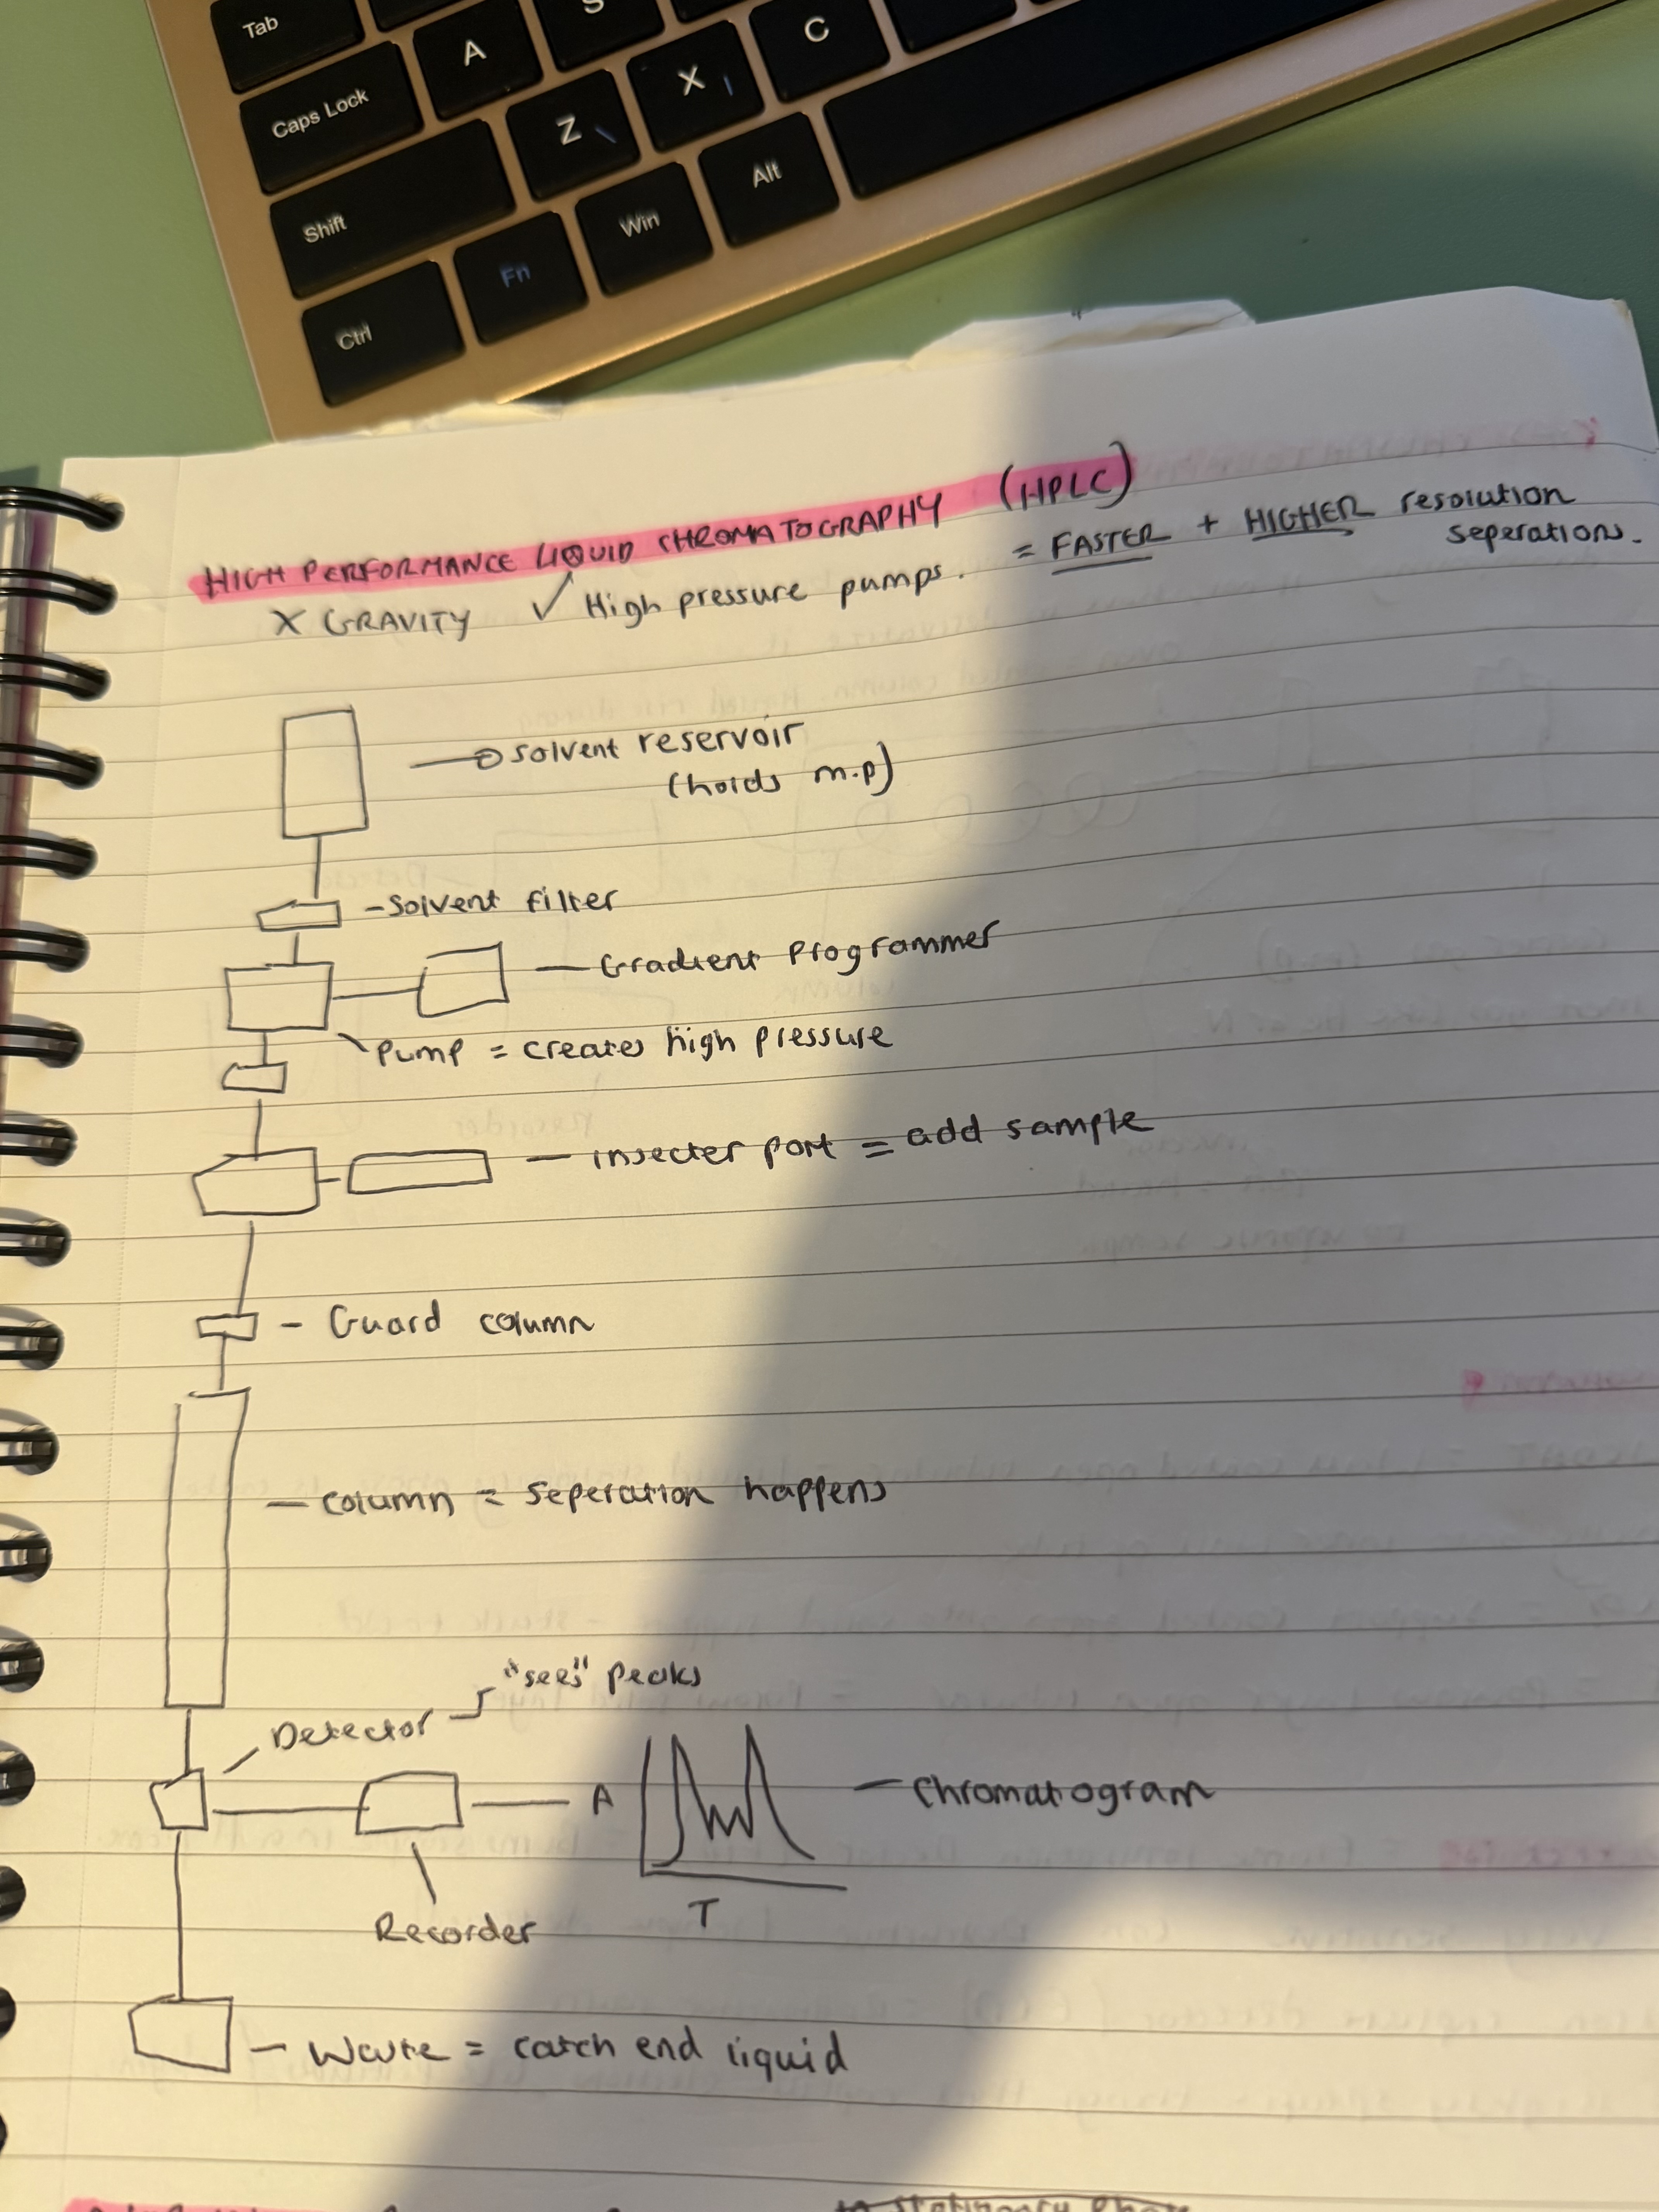 Tab
S
Caps Lock
A
Z
X
C
Shift
Ctrl
Fn
Win
Alt
HIGH PERFORMANCE LIQUID CHROMATOGRAPHY (HPLC)
X GRAVITY ✓ High pressure pumps. = FASTER + HIGHER resolution
seperations.
solvent reservoir
(holds m.p)
- Solvent filter
- Gradient Programmer
Pump = creates high pressure
- injecter port = add sample
- Guard column
- column = seperation happens
"sees" peaks
Detector
A
- Chromatogram
T
Recorder
- Waste = catch end liquid
to stationary phase